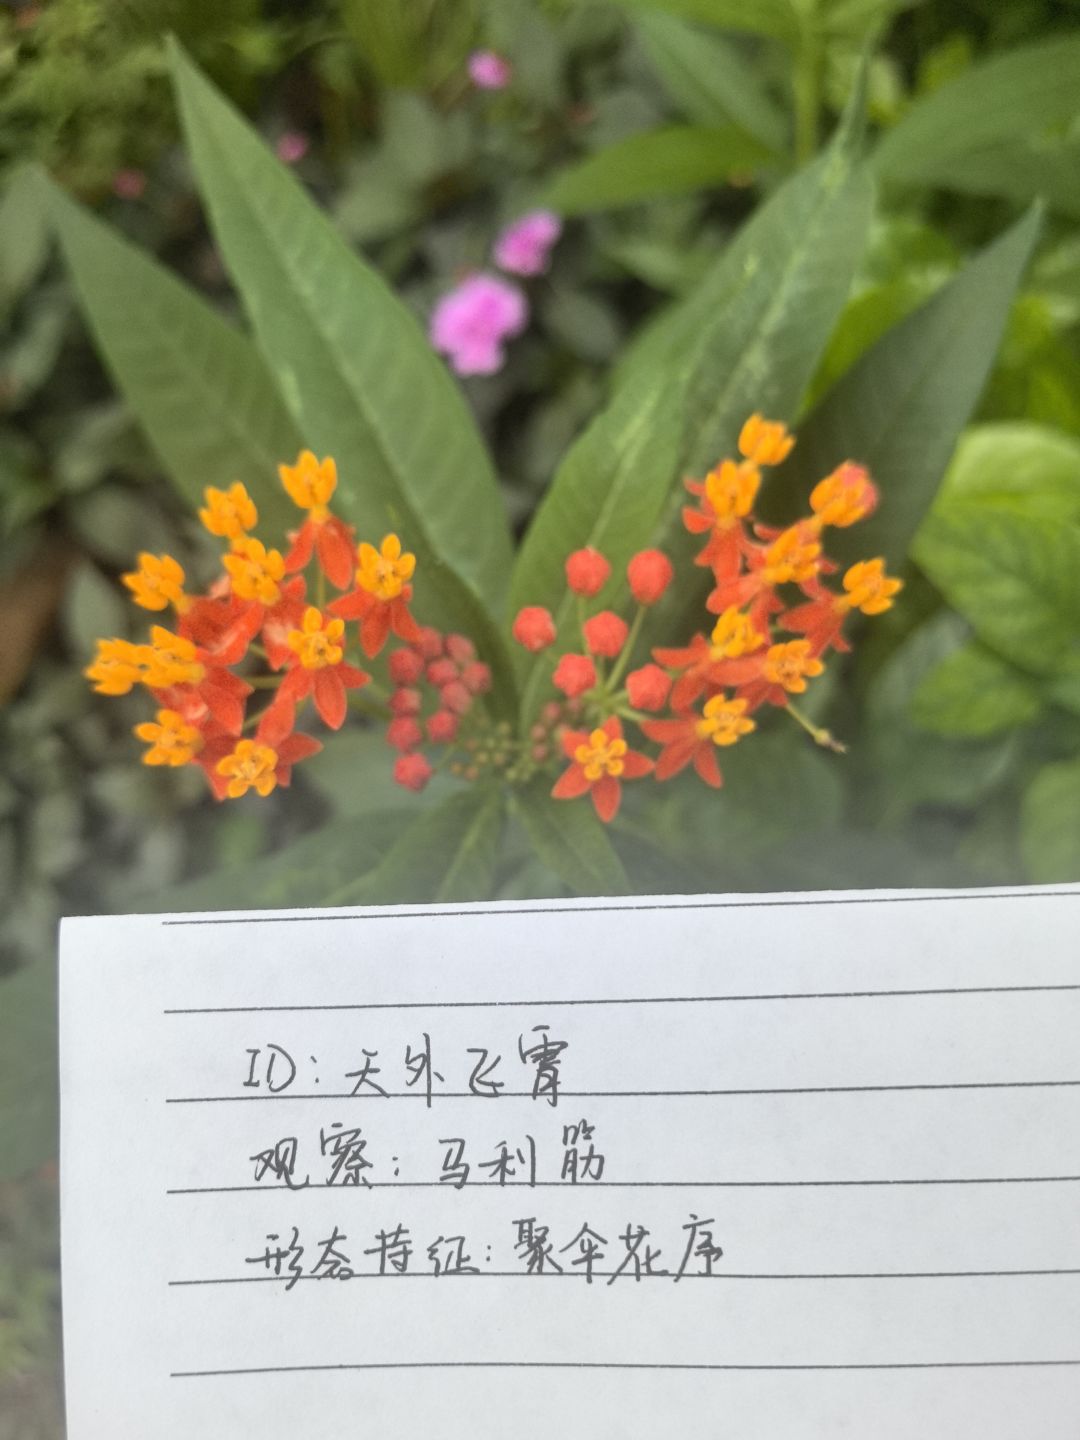 ID：天外飞霄
观察：马利筋
形态特征：聚伞花序